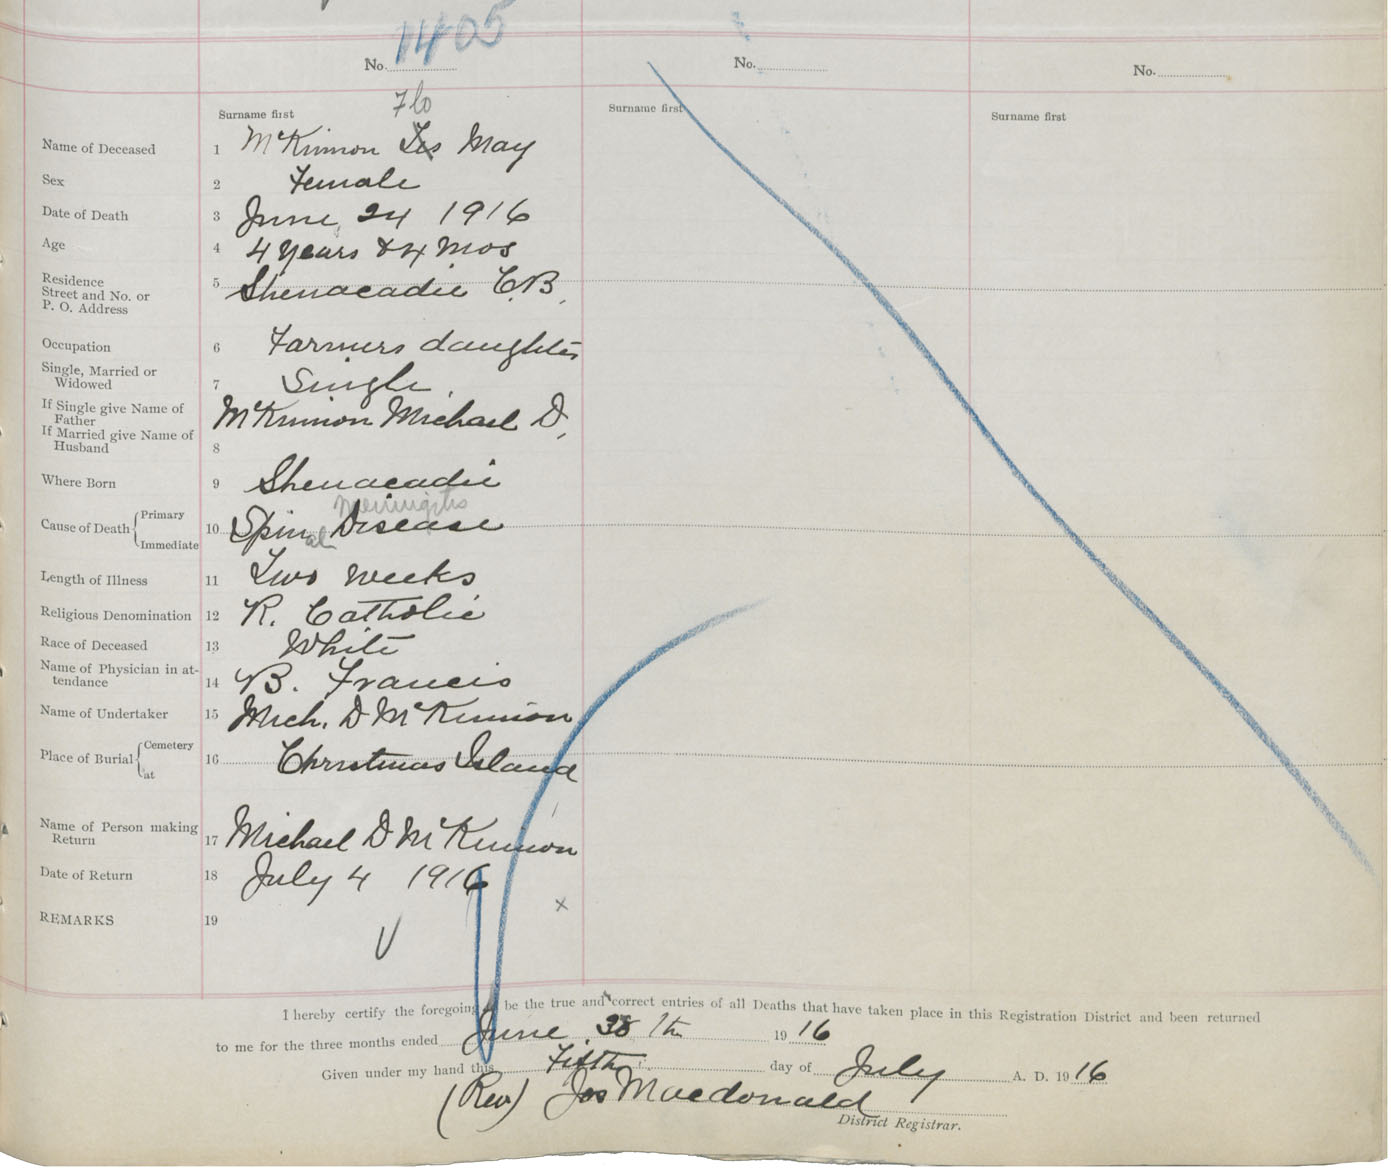 1405
No. No. No.
Flo
Surname first Surname first Surname first
Name of Deceased 1 McKinnon May
Sex 2 Female
Date of Death 3 June 24 1916
Age 4 4 years & 4 Mos
Residence
Street and No. or
P. O. Address 5 Shenacadie C.B.
Occupation 6 Farmers daughter
Single, Married or
Widowed 7 Single
If Single give Name of
Father McKinnon Michael D.
If Married give Name of
Husband 8
Where Born 9 Shenacadie
Meningitis
Cause of Death { Primary Immediate 10 Spinal Disease
Length of Illness 11 Two weeks
Religious Denomination 12 R. Catholic
Race of Deceased 13 White
Name of Physician in at-
tendance 14 B. Francis
Name of Undertaker 15 Mich. D McKinnon
Place of Burial { Cemetery at 16 Christmas Island
Name of Person making
Return 17 Michael D McKinnon
Date of Return 18 July 4 1916
REMARKS 19
I hereby certify the foregoing to be the true and correct entries of all Deaths that have taken place in this Registration District and been returned
to me for the three months ended June 1916
Given under my hand this Fifth day of July A. D. 1916
(Rev) Jos Macdonald
District Registrar.